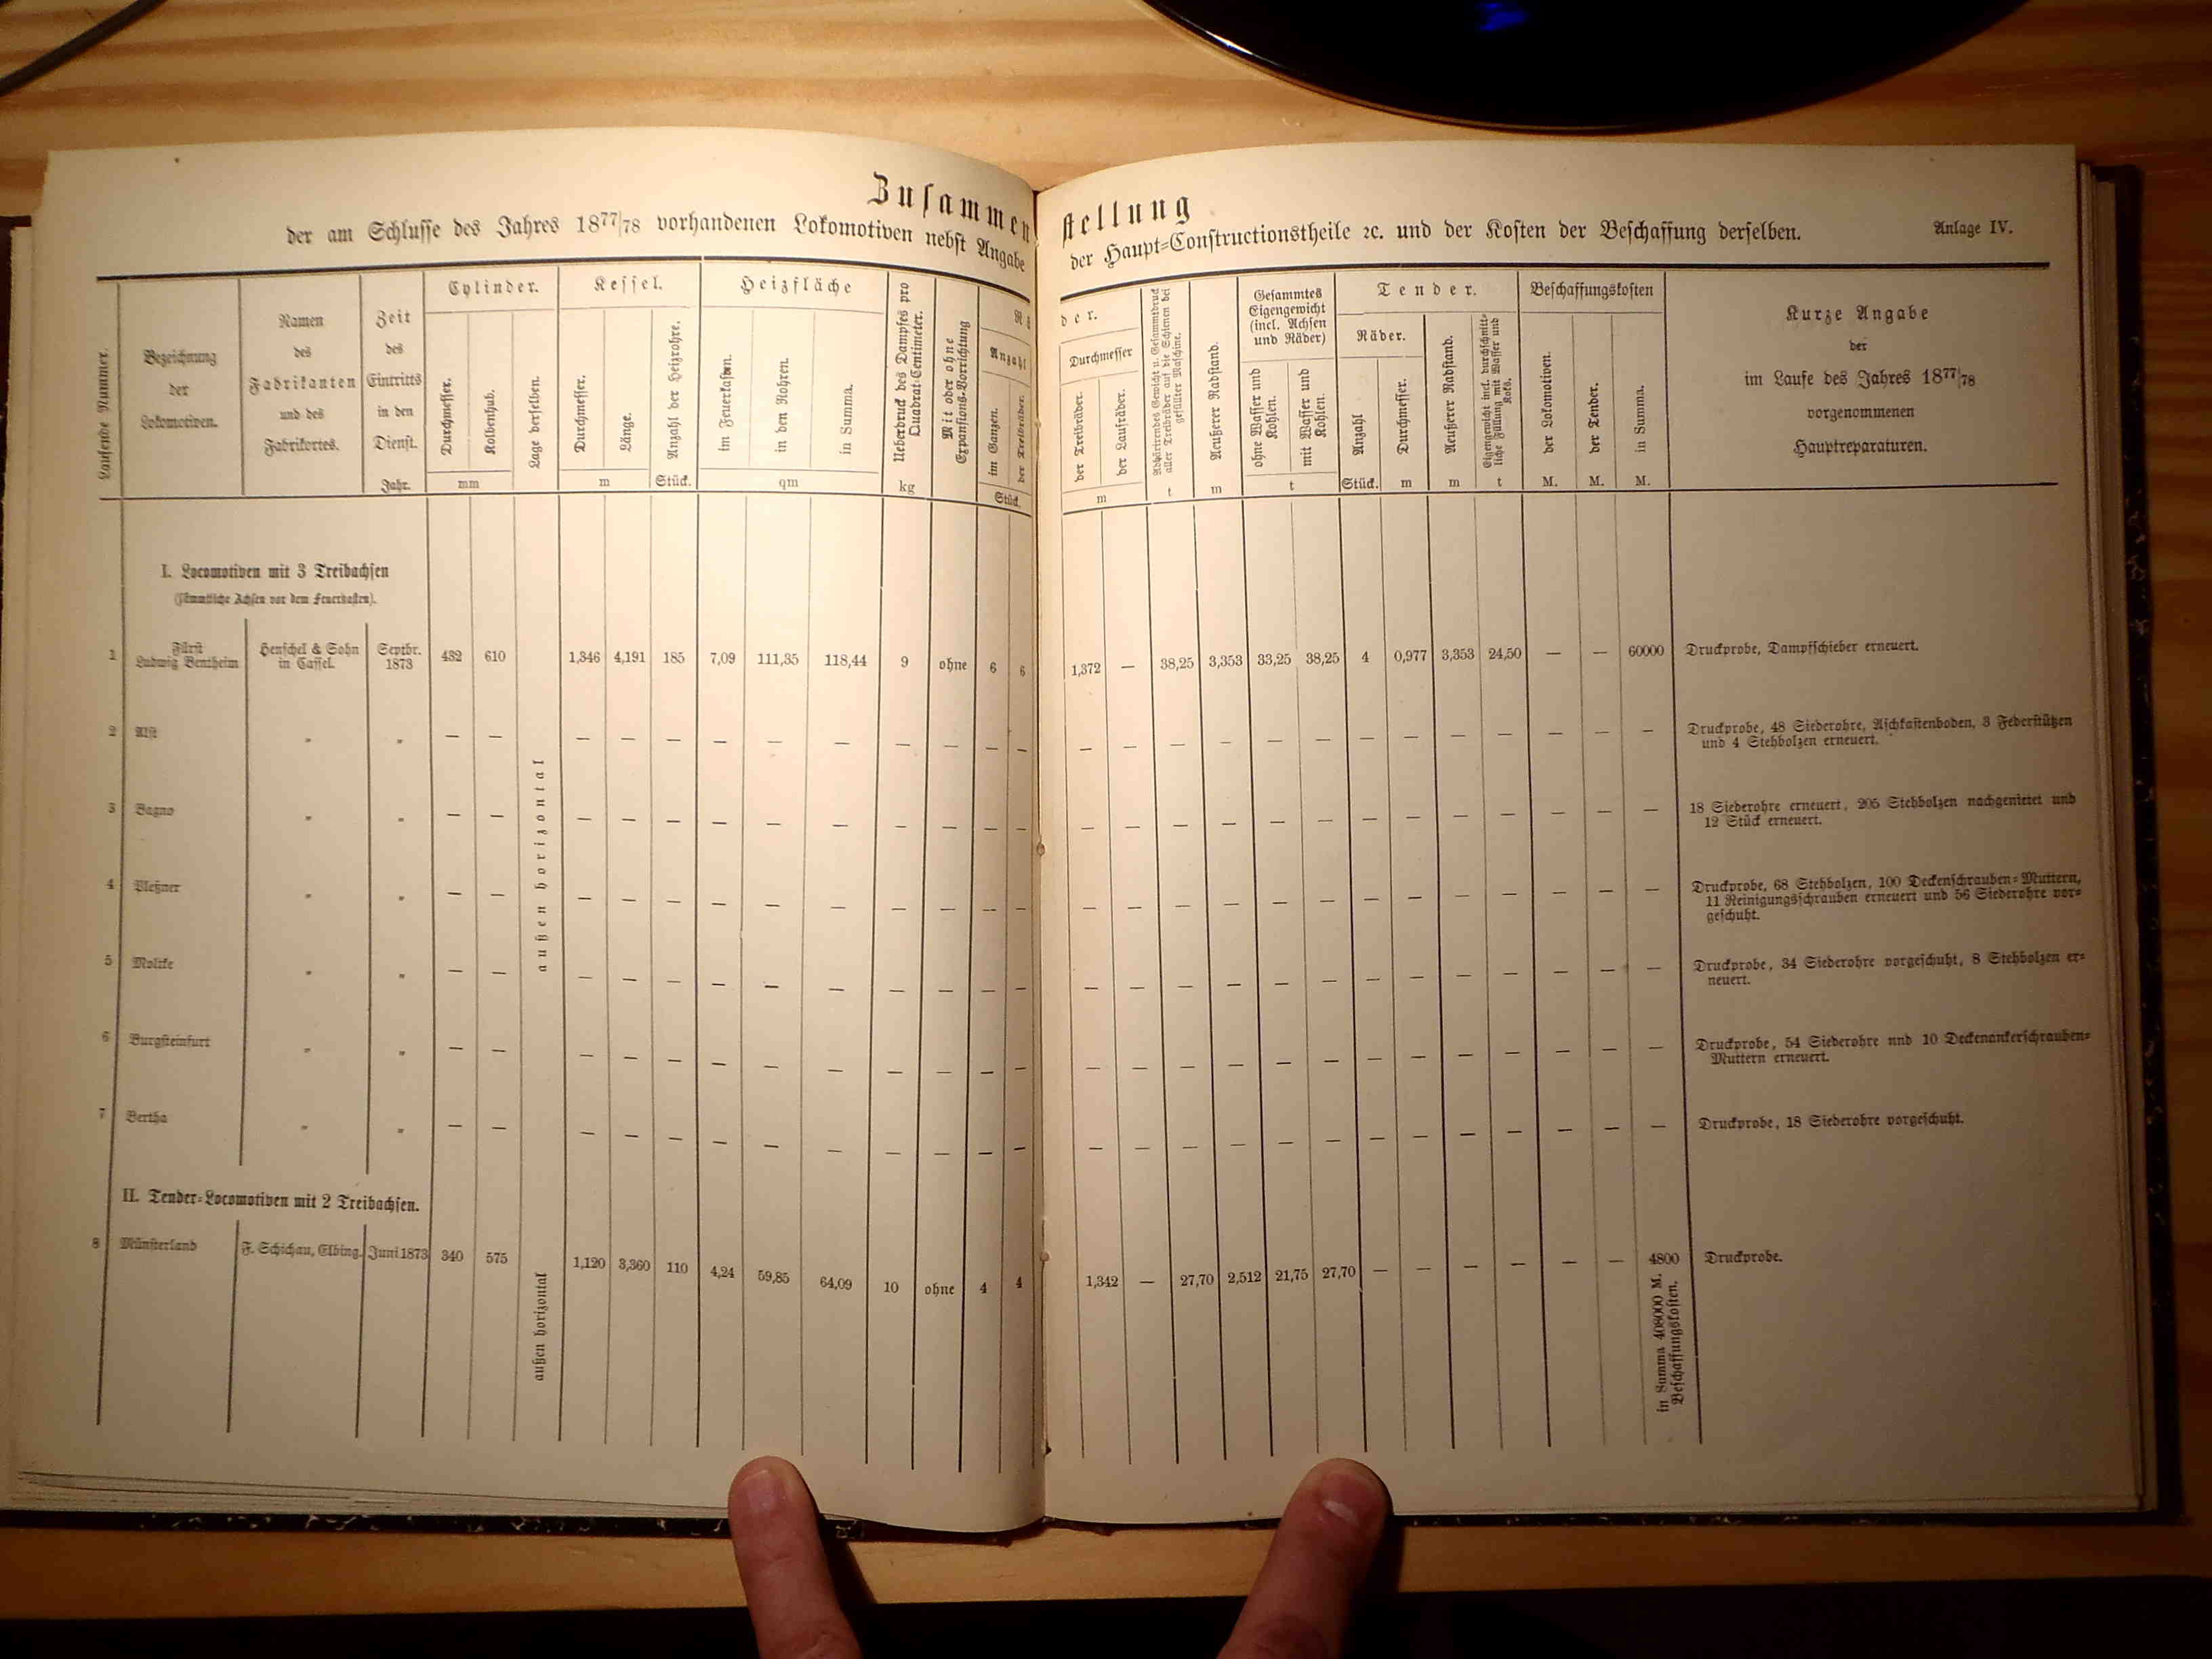 Zusammenstellung
der am Schlusse des Jahres 18⁷⁷/₇₈ vorhandenen Lokomotiven nebst Angabe der Haupt-Constructionstheile ꝛc. und der Kosten der Beschaffung derselben.
Anlage IV.
Laufende Nummer.
Bezeichnung
der
Lokomotiven.
Namen
des
Fabrikanten
und des
Fabrikortes.
Zeit
des
Eintritts
in den
Dienst.
Jahr.
Cylinder.
Durchmesser.
Kolbenhub.
mm
Lage derselben.
Kessel.
Durchmesser.
Länge.
m
Anzahl der Heizrohre.
Stück.
Heizfläche
im Feuerkasten.
in den Rohren.
in Summa.
qm
Ueberdruck des Dampfes pro
Quadrat-Centimeter.
kg
Mit oder ohne
Expansions-Vorrichtung
Anzahl
im Ganzen.
der Treibräder.
Stück.
der.
Durchmesser
der Treibräder.
der Laufräder.
m
Adhärirendes Gewicht u. Gesammtdruck
aller Treibräder auf die Schienen bei
gefüllter Maschine.
t
Aeußerer Radstand.
m
Gesammtes
Eigengewicht
(incl. Achsen
und Räder)
ohne Wasser und
Kohlen.
mit Wasser und
Kohlen.
t
Tender.
Räder.
Anzahl
Stück.
Durchmesser.
m
Aeußerer Radstand.
m
Eigengewicht incl. durchschnitt-
liche Füllung mit Wasser und
Koks.
t
Beschaffungskosten
der Lokomotiven.
M.
der Tender.
M.
in Summa.
M.
Kurze Angabe
der
im Laufe des Jahres 18⁷⁷/₇₈
vorgenommenen
Hauptreparaturen.
I. Locomotiven mit 3 Treibachsen
(sämmtliche Achsen vor dem Feuerkasten).
1 Fürst Ludwig Bentheim Henschel & Sohn in Cassel. Septbr. 1873 432 610 1,346 4,191 185 7,09 111,35 118,44 9 ohne 6 6 1,372 — 38,25 3,353 33,25 38,25 4 0,977 3,353 24,50 — — 60000 Druckprobe, Dampfschieber erneuert.
2 Alst " " — — — — — — — — — — — — — — — — — — — — — — — — — Druckprobe, 48 Siederohre, Aschkastenboden, 3 Federstützen
und 4 Stehbolzen erneuert.
3 Bagno " " — — — — — — — — — — — — — — — — — — — — — — — — — 18 Siederohre erneuert, 205 Stehbolzen nachgenietet und
12 Stück erneuert.
4 Pleßner " " — — — — — — — — — — — — — — — — — — — — — — — — — Druckprobe, 68 Stehbolzen, 100 Deckenschrauben-Muttern,
11 Reinigungsschrauben erneuert und 56 Siederohre vor-
geschuht.
5 Moltke " " — — — — — — — — — — — — — — — — — — — — — — — — — Druckprobe, 34 Siederohre vorgeschuht, 8 Stehbolzen er-
neuert.
6 Burgsteinfurt " " — — — — — — — — — — — — — — — — — — — — — — — — — Druckprobe, 54 Siederohre nnd 10 Deckenankerschrauben-
Muttern erneuert.
7 Bertha " " — — — — — — — — — — — — — — — — — — — — — — — — — Druckprobe, 18 Siederohre vorgeschuht.
außen horizontal
II. Tender-Locomotiven mit 2 Treibachsen.
8 Münsterland F. Schichau, Elbing. Juni 1873 340 575 1,120 3,360 110 4,24 59,85 64,09 10 ohne 4 4 1,342 — 27,70 2,512 21,75 27,70 — — — — — — 4800 Druckprobe.
außen horizontal
in Summa 408000 M.
Beschaffungskosten.